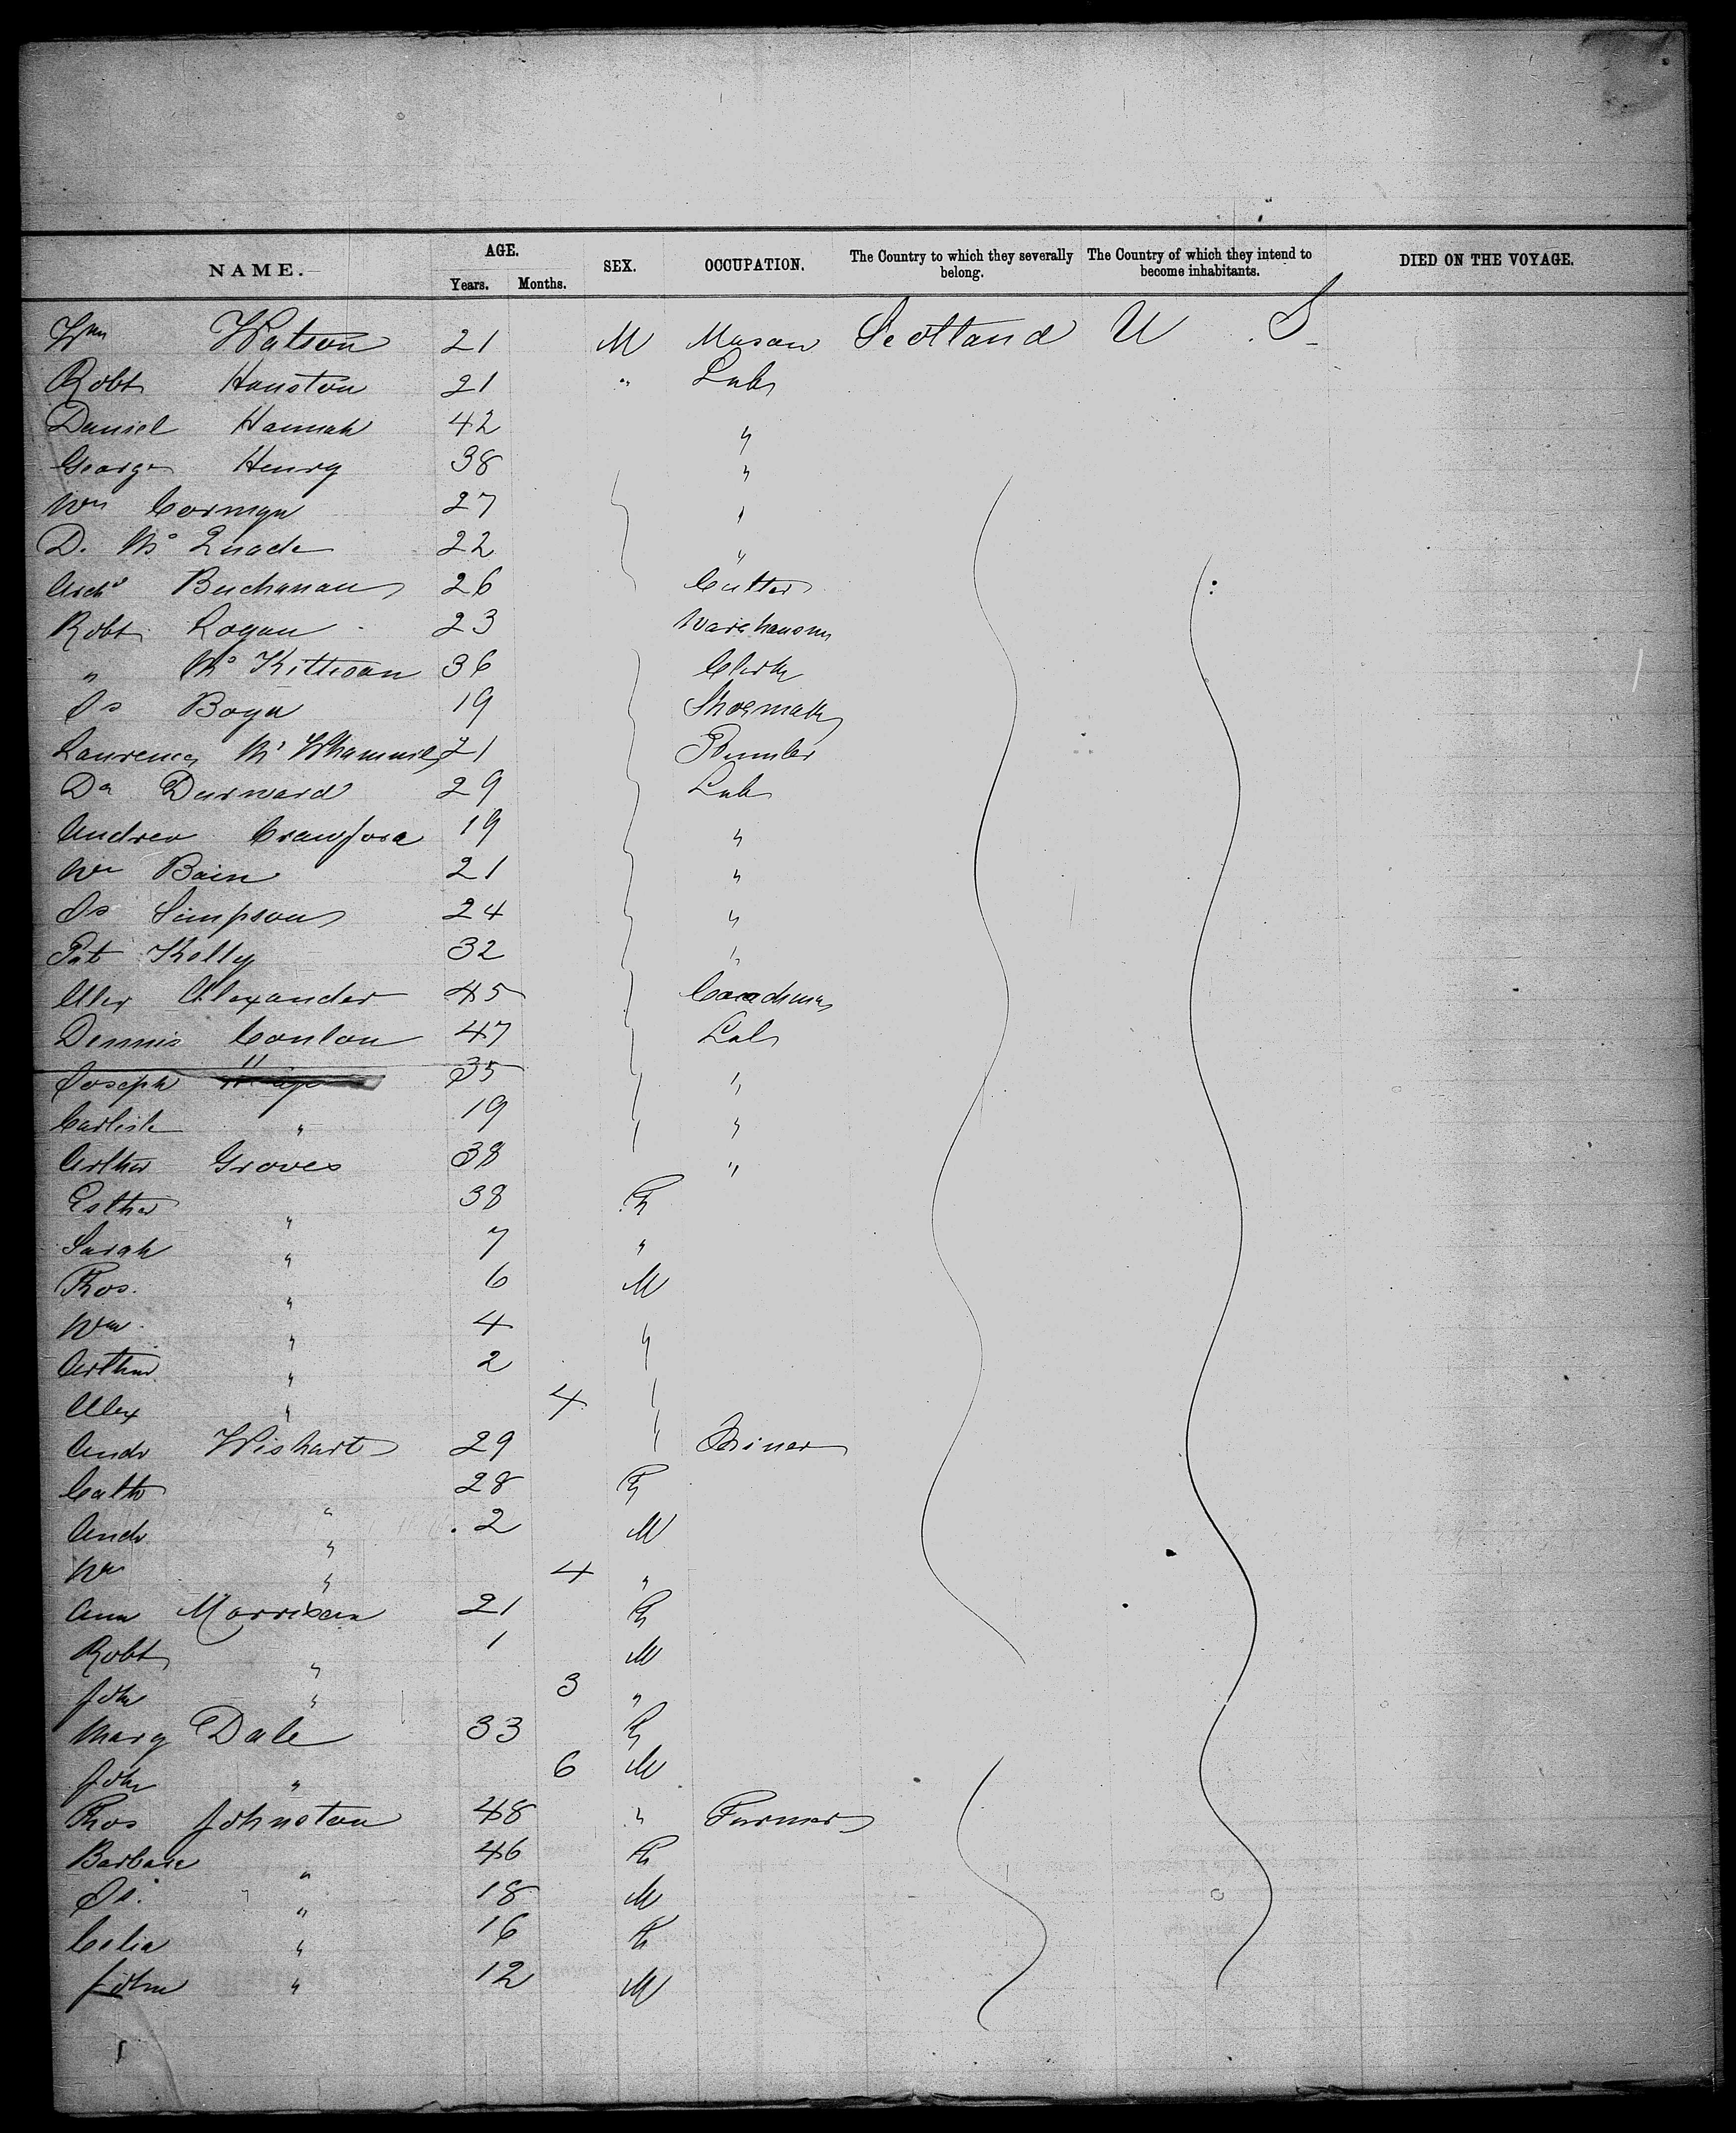 NAME. AGE. SEX. OCCUPATION. The Country to which they severally belong. The Country of which they intend to become inhabitants. DIED ON THE VOYAGE.
Years. Months.
Wm Watson 21 M Mason Scotland U S
Robt Houston 21 " Lab
Daniel Hannah 42 "
George Henry 38 "
Wm 27 "
D. Mc Quade 22 "
Archd Buchanan 26 Cutter
Robt Logan 23
" Mc 36 Clerk
Js 19 Shoemak
Laurence Mc 21
Da Durward 29 Lab
Andrew Crawford 19 "
Wm Bain 21 "
Js Simpson 24 "
Pat Kelly 32 "
Alex Alexander 45 Coachman
Dennis Conlon 47 Lab
Joseph " 35 "
Carlisle " 19 "
Arthur Groves 38 "
Esther " 38 F
Sarah " 7 "
Thos. " 6 M
Wm. " 4 "
Arthur " 2
Alex " 4
Andr Wishart 29 " Miner
Cath " 28 F
Andr " 2 M
Wm " 4 "
Ann Morrison 21 F
Robt " 1 M
Joh " 3 "
Marg Dale 33 F
Joh " 6 M
Thos Johnston 48 " Farmer
Barbara " 46 F
Js. " 18 M
Celia " 16 F
John " 12 M